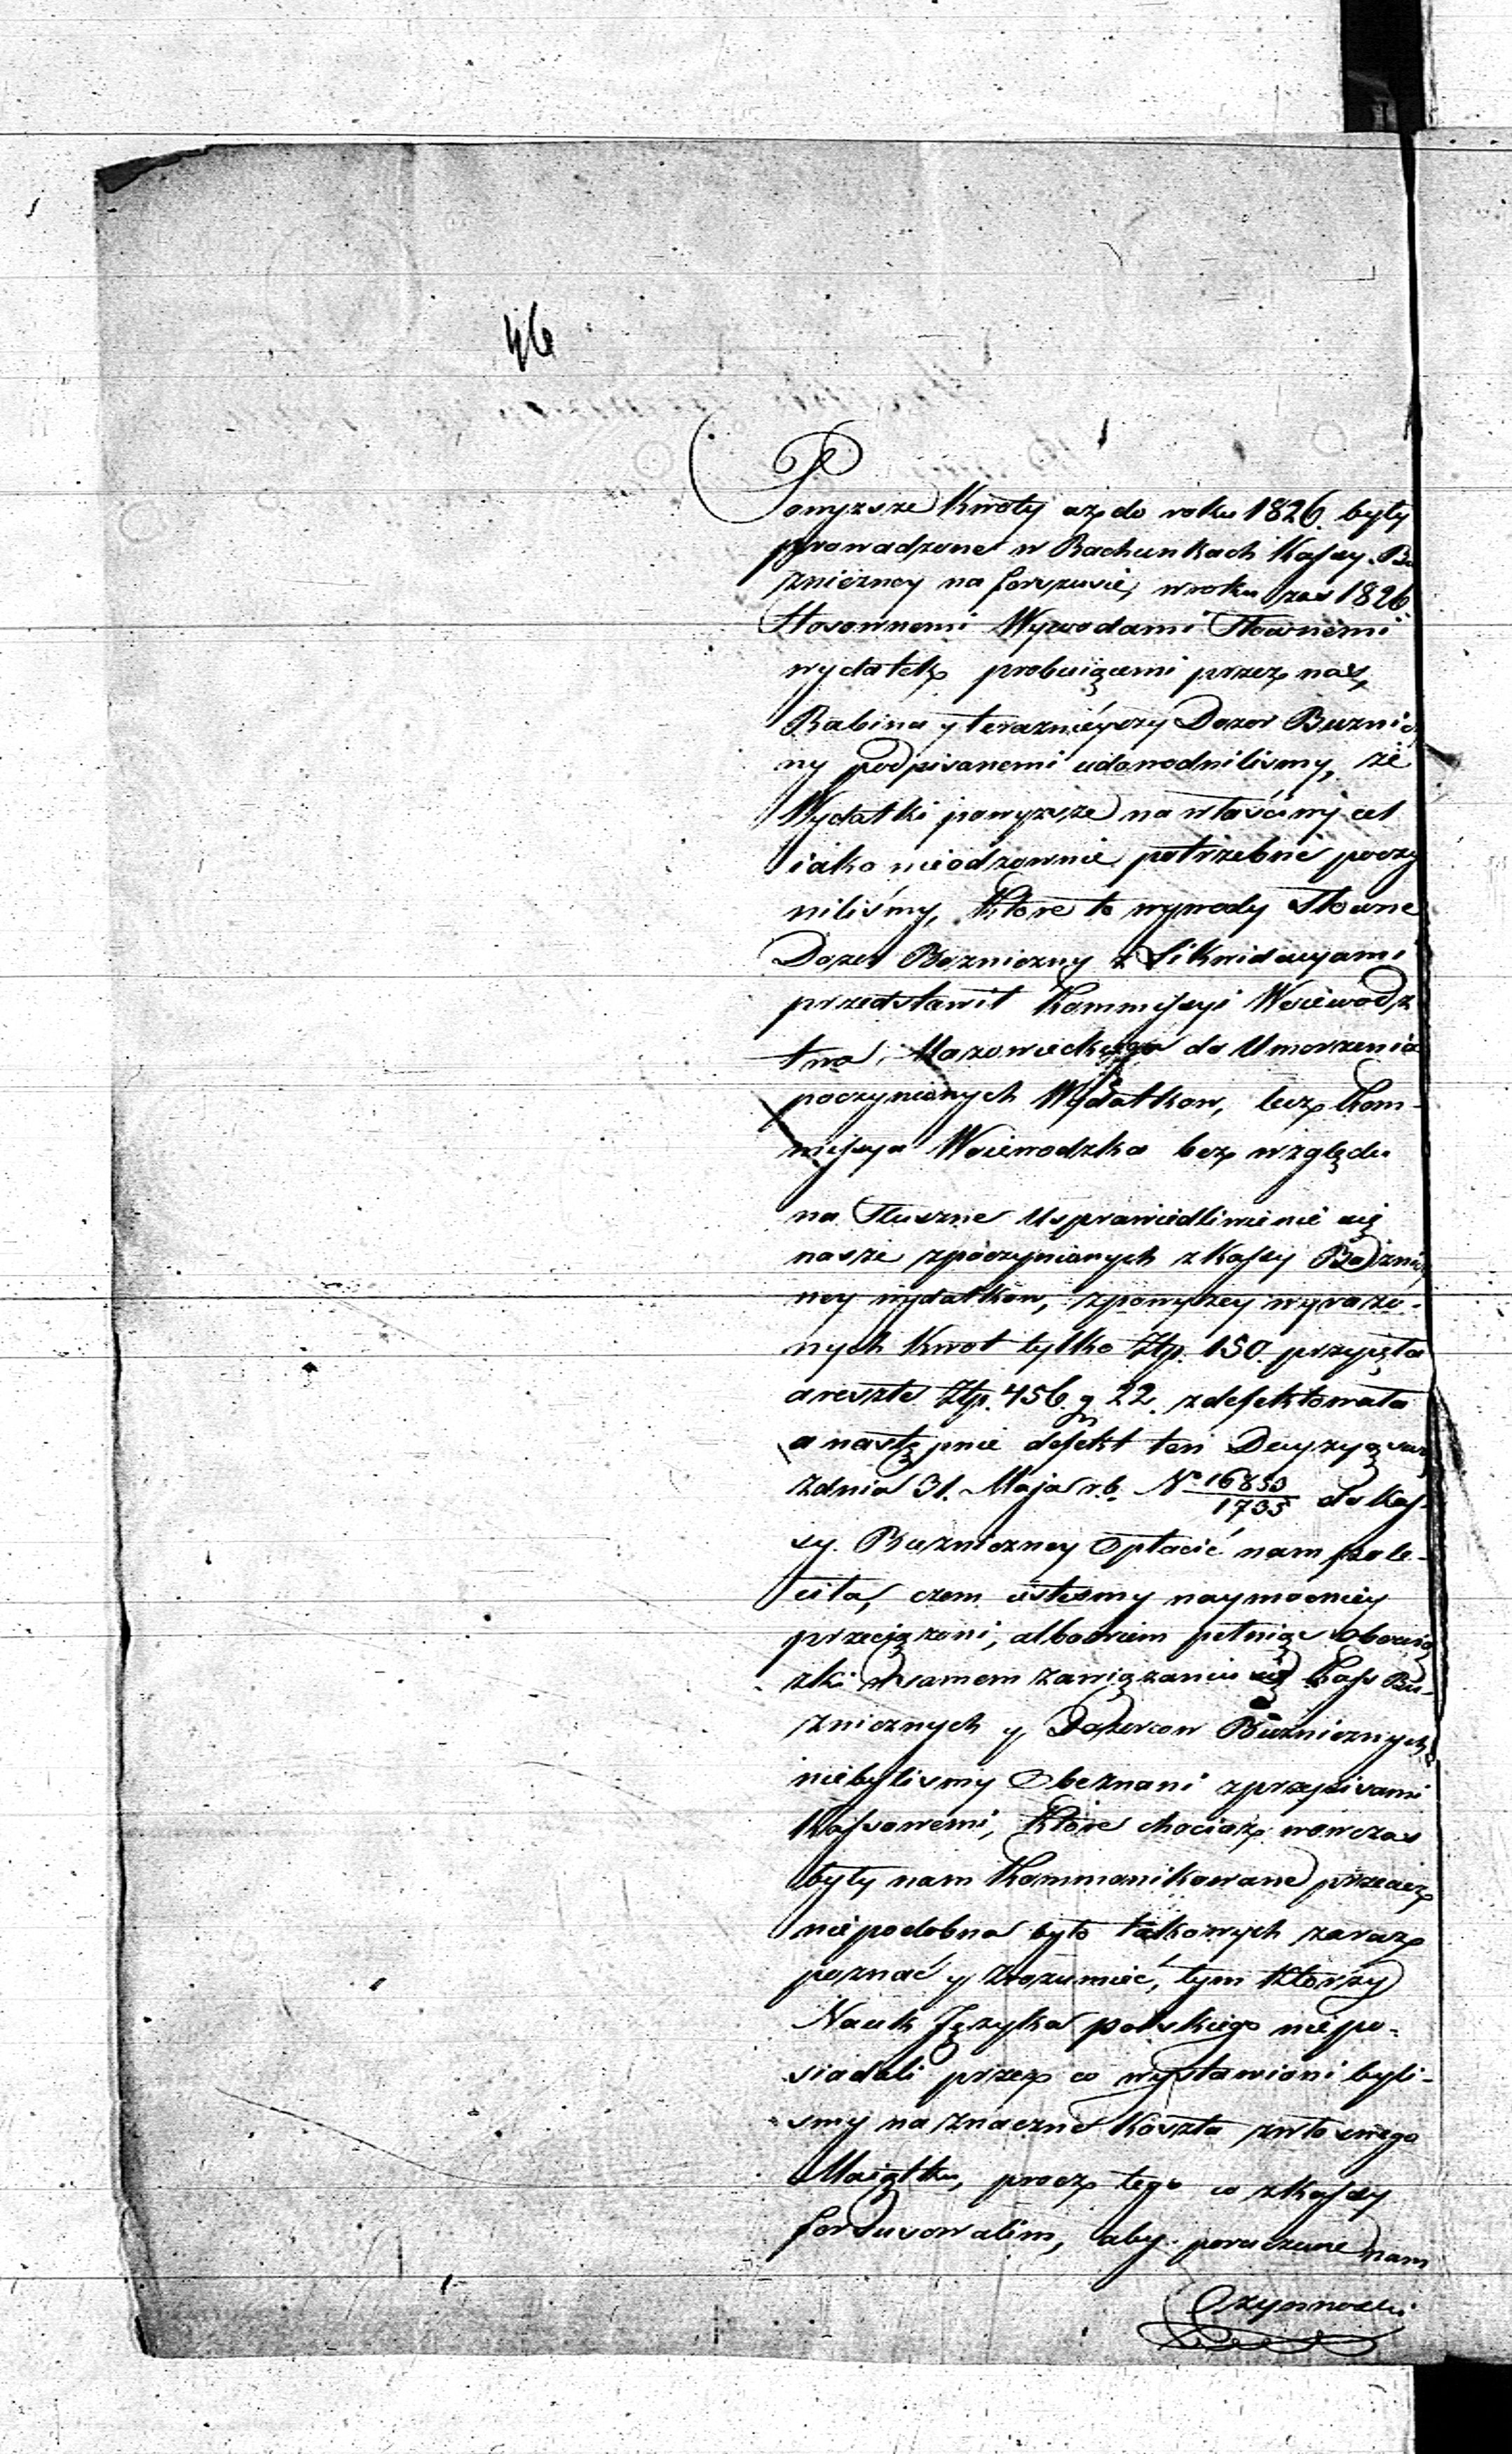 46
Powyzsze Kwoty aż do roku 1826. były
prowadzone w Rachunkach Kassy Bo
zniczney na forszusie, w roku zas 1826.
Stosownemi Wywodami Słownemi
wydatek probuiącemi przez nas,
Rabina y teraznieyszy Dozor Buznicz
ny podpisanemi udowodnilismy, że
Wydatki powyzsze na właściwy cel
iako nieodzownie potrzebne poczy
niliśmy, które to wywody słowne
Dozor Bozniczny z Likwidacyami
przedstawił Kommissyi Woiewodz
twa Mazowieckiego do Umorzenia
poczynionych Wydatkow, lecz Kom-
missya Woiewodzka bez względu
na słuszne Usprawiedliwienie się
nasze z poczynionych z Kassy Bożnicz
ney wydatkow, z powyzey wyrazo-
nych Kwot tylko Złp. 150. przyjęła
a resztę Złp. 456. g 22. zdefektowała
a następnie defekt ten Decyzyą swą
z dnia 31. Maja r. b. No 16853/1735 do Kas
sy Buzniczney Opłacić nam pole-
ciła, czem iestesmy naymocniey
przeciązeni, albowiem pełniąc obowią
zki w samem zawiązaniu się Kass Bu-
znicznych y Dozorcow Buznicznych
niebylismy Obeznani z przepisami
Kassowemi, które chociaż wowczas
były nam Kommonikowane przecież
niepodobna było takowych zaraz
poznać y zrozumieć, tym którzy
Nauk Języka polskiego niepo-
siadali przez co wystawieni byli-
smy na znaczne Koszta z własnego
Maiątku, procz tego co z Kassy
forszusowalim, aby poruczone nam
Czynnosci